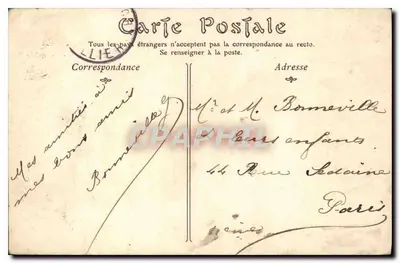 Carte Postale
Tous les pays étrangers n'acceptent pas la correspondance au recto.
Se renseigner à la poste.
LLIE
Correspondance
Adresse
Mes amitiés à
mes bons amis
Bonneville
Mr et M. Bonneville
et leurs enfants
44 Rue Sedaine
Paris